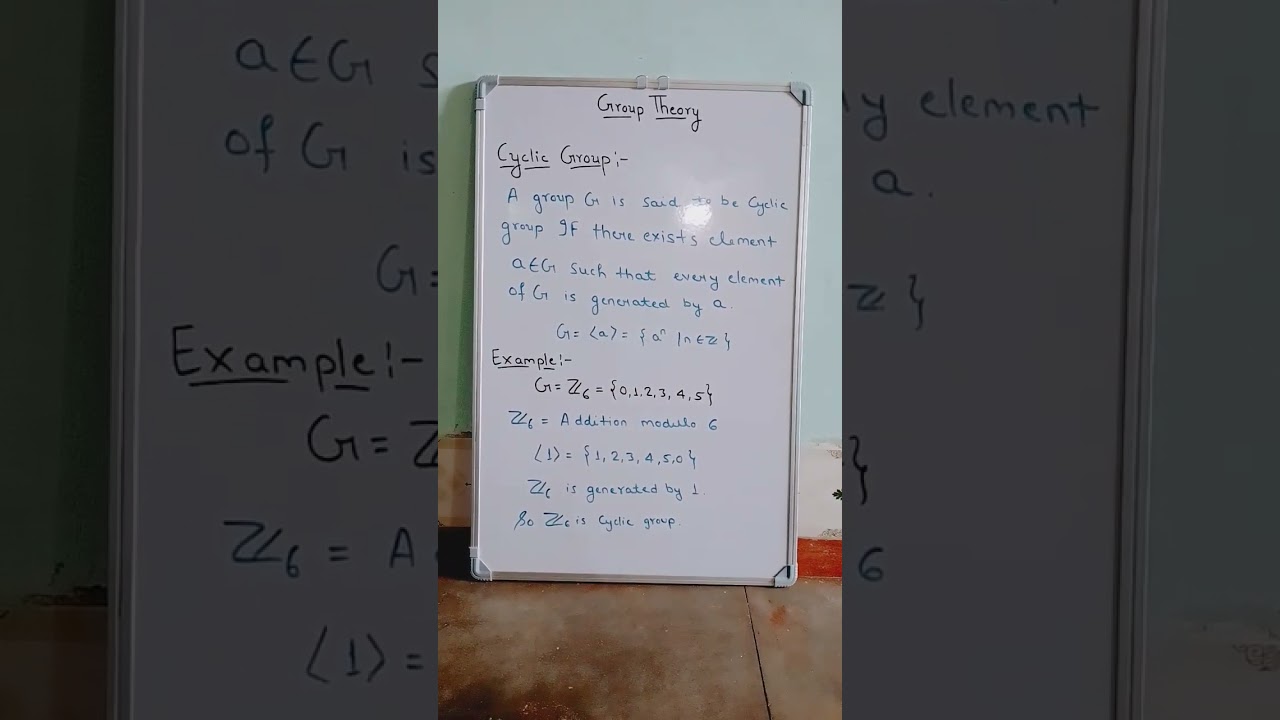 Group Theory
Cyclic Group:-
A group G is said to be Cyclic
group If there exists element
a∈G such that every element
of G is generated by a.
G = ⟨a⟩ = {aⁿ | n ∈ ℤ}
Example:-
G = ℤ₆ = {0,1,2,3,4,5}
ℤ₆ = Addition modulo 6
⟨1⟩ = {1,2,3,4,5,0}
ℤ₆ is generated by 1.
So ℤ₆ is Cyclic group.